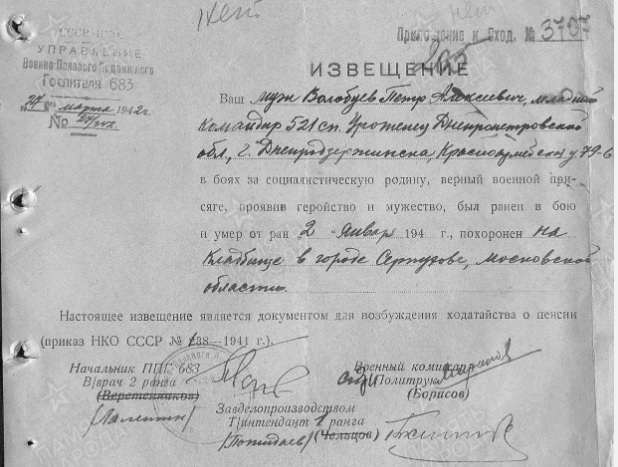 нет
нет
СССР НКО
УПРАВЛЕНИЕ
Военно-Полевого Подвижного
Госпиталя 683
"27" марта 1942 г.
№
Приложение к Вход. № 3707
ИЗВЕЩЕНИЕ
Ваш муж Волобуев Петр Алексеевич, младший
командир 521 сп. Уроженец Днепропетровской
обл., г. Днепродзержинска, Красноармейская у. 79-6
в боях за социалистическую родину, верный военной при-
сяге, проявив геройство и мужество, был ранен в бою
и умер от ран 2 января 194 г., похоронен на
кладбище в городе Серпухове, Московской
области.
Настоящее извещение является документом для возбуждения ходатайства о пенсии
(приказ НКО СССР № 138—1941 г.).
Начальник ППГ 683
В/врач 2 ранга
(Веретенников)
Военный комиссар
Политрук
(Борисов)
Заведелопроизводством
Т/интендант 1 ранга
(Чельцов)